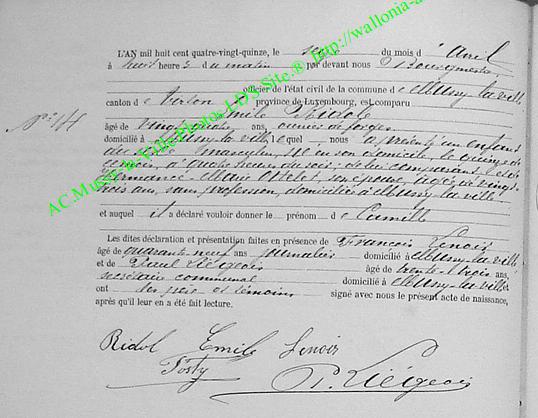 L'AN mil huit cent quatre-vingt-quinze, le seize du mois d'Avril
à huit heures du matin par devant nous Bourgmestre
officier de l'état civil de la commune de Mussy-la-ville
canton de Virton province de Luxembourg, est comparu
Nº 14
Emile Ridole
âgé de vingt ans, ouvrier de forges
domicilié à Mussy-la-ville lequel nous a présenté un enfant
du sexe masculin, né en son domicile, le quinze
à quatre heures du soir, de lui comparant et de
Marie son épouse, âgée de vingt-
trois ans, sans profession, domiciliée à Mussy-la-ville
et auquel il a déclaré vouloir donner le prénom de Camille
Les dites déclaration et présentation faites en présence de François Lenoir
âgé de quarante-neuf ans domicilié à Mussy-la-ville
et de Paul Liégeois âgé de trente-trois ans,
secrétaire communal domicilié à Mussy-la-ville
ont les père et témoins signé avec nous le présent acte de naissance,
après qu'il leur en a été fait lecture.
Ridol Emile Lenoir
P. Liégeois
AC.Mussy-la-Ville Photos LDS Site.® http://wallonia-a